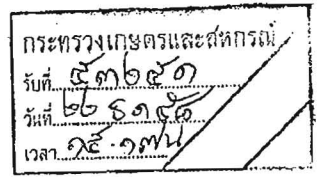 กระทรวงเกษตรและสหกรณ์
รับที่ ๕๓๖๕๑
วันที่ ๒๒ ธ.ค. ๕๘
เวลา ๑๕.๑๗ น.